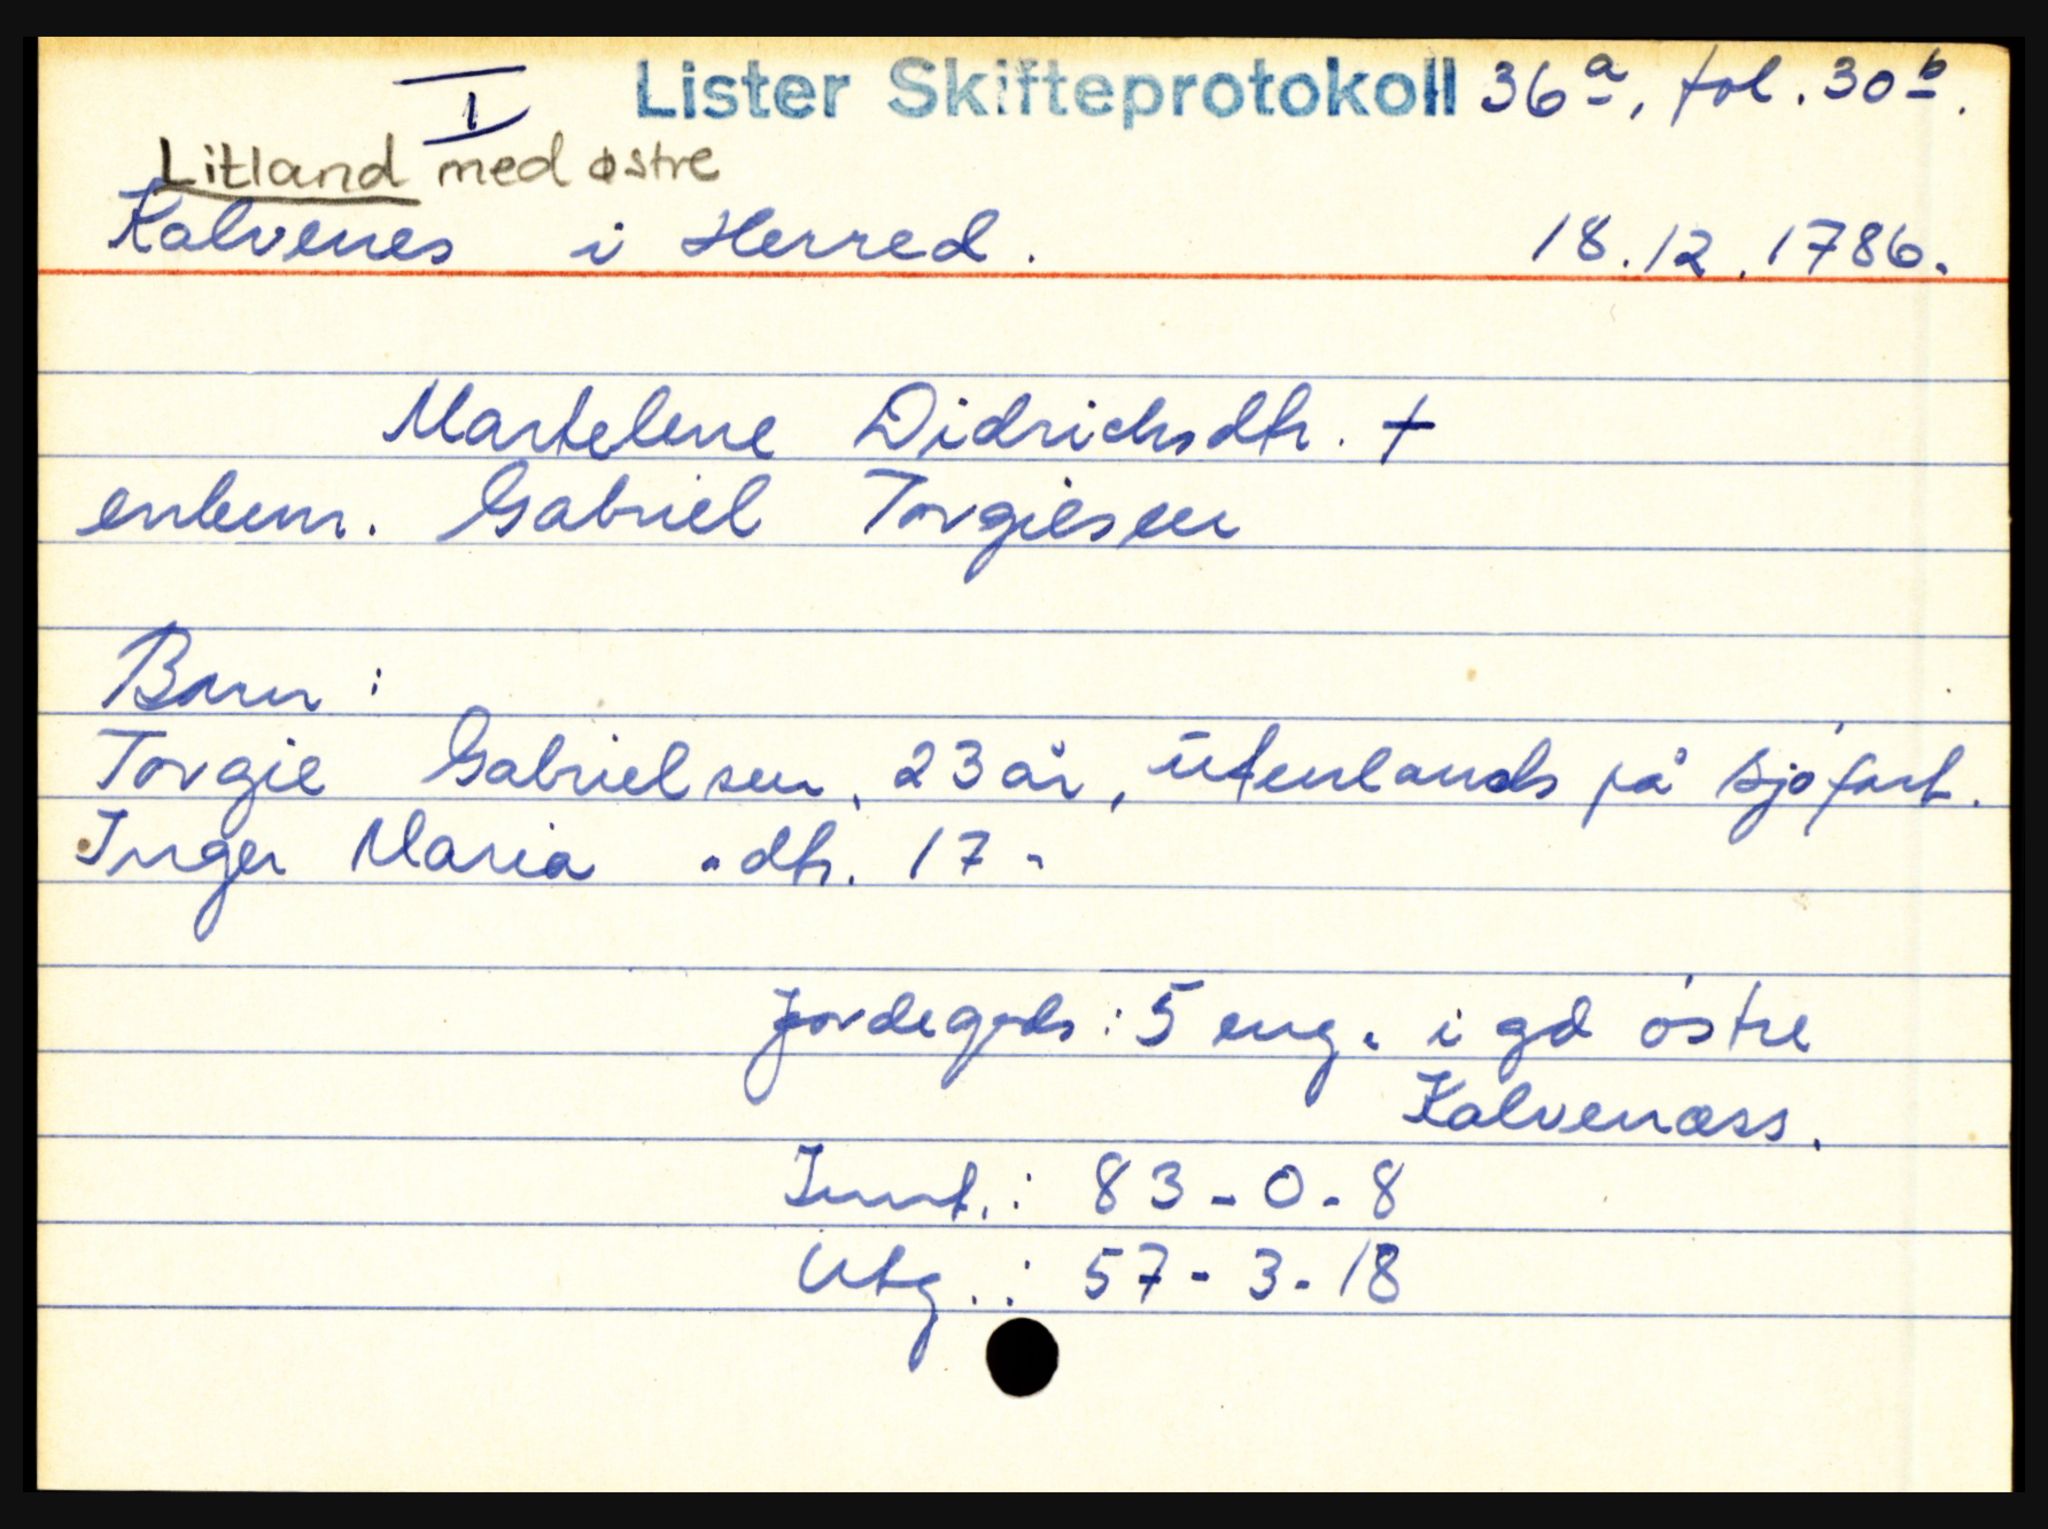 I Lister Skifteprotokoll 36a, fol. 30b.
Litland med østre
Kalvenes i Herred. 18.12.1786.
Martelene Didrichsdtr. †
enkem. Gabriel Torgiesen
Barn:
Torgie Gabrielsen, 23 år, utenlands på sjøfart.
Inger Maria "dtr. 17 "
Jordegods: 5 eng. i gd østre
Kalvenæss.
Innt.: 83-0-8
Utg.: 57-3-18